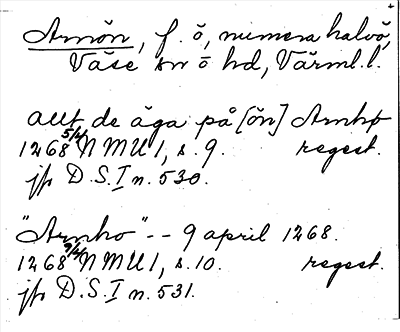 Arnön, f. ö, numera halvö,
Väse sn o hd, Värml.l.
allt de äga på [ön] Arnhø
1268 5/4 NMU 1, s. 9. regest.
jfr D.S. I n. 530.
"Arnho" -- 9 april 1268.
1268 9/4 NMU 1, s. 10. regest.
jfr D.S. I n. 531.